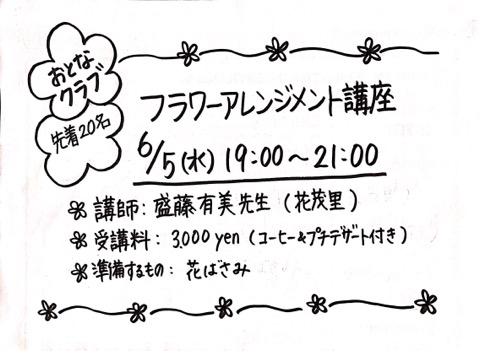 おとな
クラブ
先着20名
フラワーアレンジメント講座
6/5(水) 19:00～21:00
講師: 盛藤有美先生 (花茂里)
受講料: 3,000 yen (コーヒー&プチデザート付き)
準備するもの: 花ばさみ